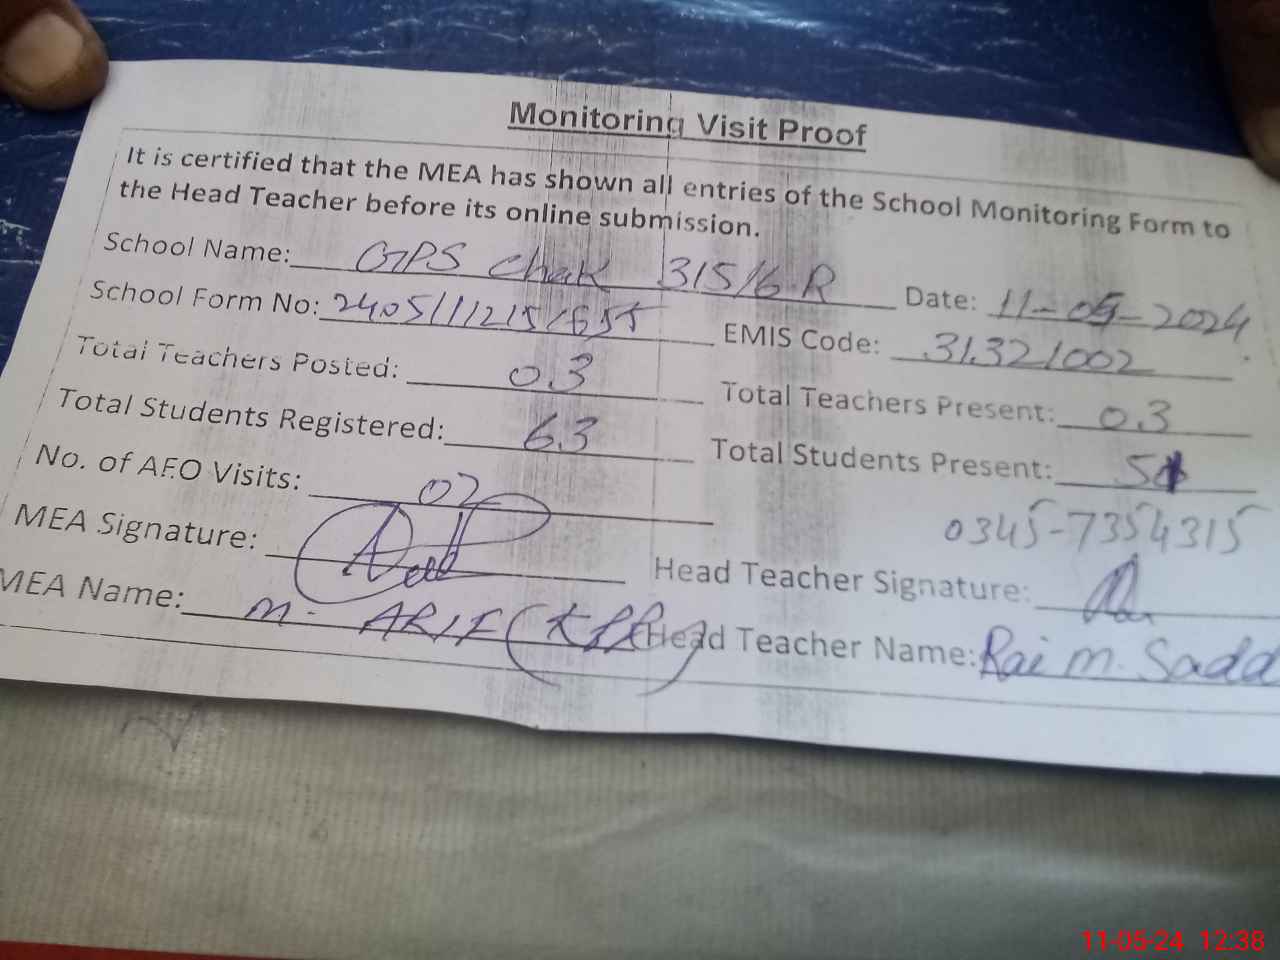 Monitoring Visit Proof
It is certified that the MEA has shown all entries of the School Monitoring Form to
the Head Teacher before its online submission.
School Name: GPS Chak 315/6.R Date: 11-05-2024
School Form No: EMIS Code: 31321002
Total Teachers Posted: 03 Total Teachers Present: 03
Total Students Registered: 63 Total Students Present:
No. of AEO Visits: 02
0345-7354315
MEA Signature: Head Teacher Signature:
MEA Name: M. ARIF Head Teacher Name: Rai M. Sadd
11-05-24 12:38